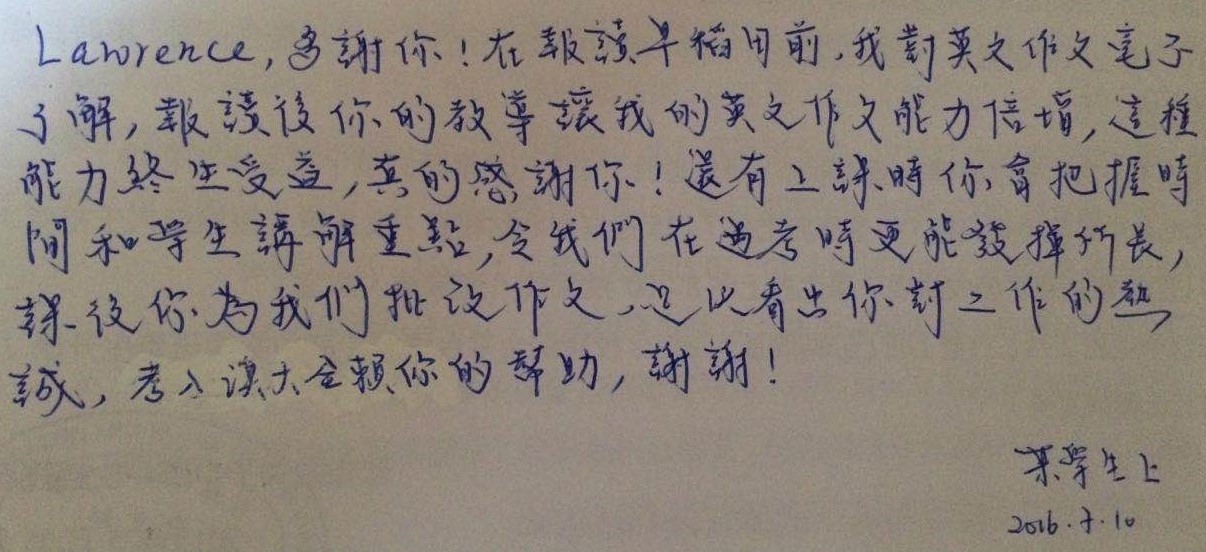 Lawrence, 多謝你！在報讀早稻田前，我對英文作文毫不
了解，報讀後你的教導讓我的英文作文能力倍增，這種
能力終生受益，真的感謝你！還有上課時你會把握時
間和學生講解重點，令我們在過考時更能發揮所長，
課後你為我們批改作文，足以看出你對工作的熱
誠，考入澳大全賴你的幫助，謝謝！
某學生上
2016.7.10